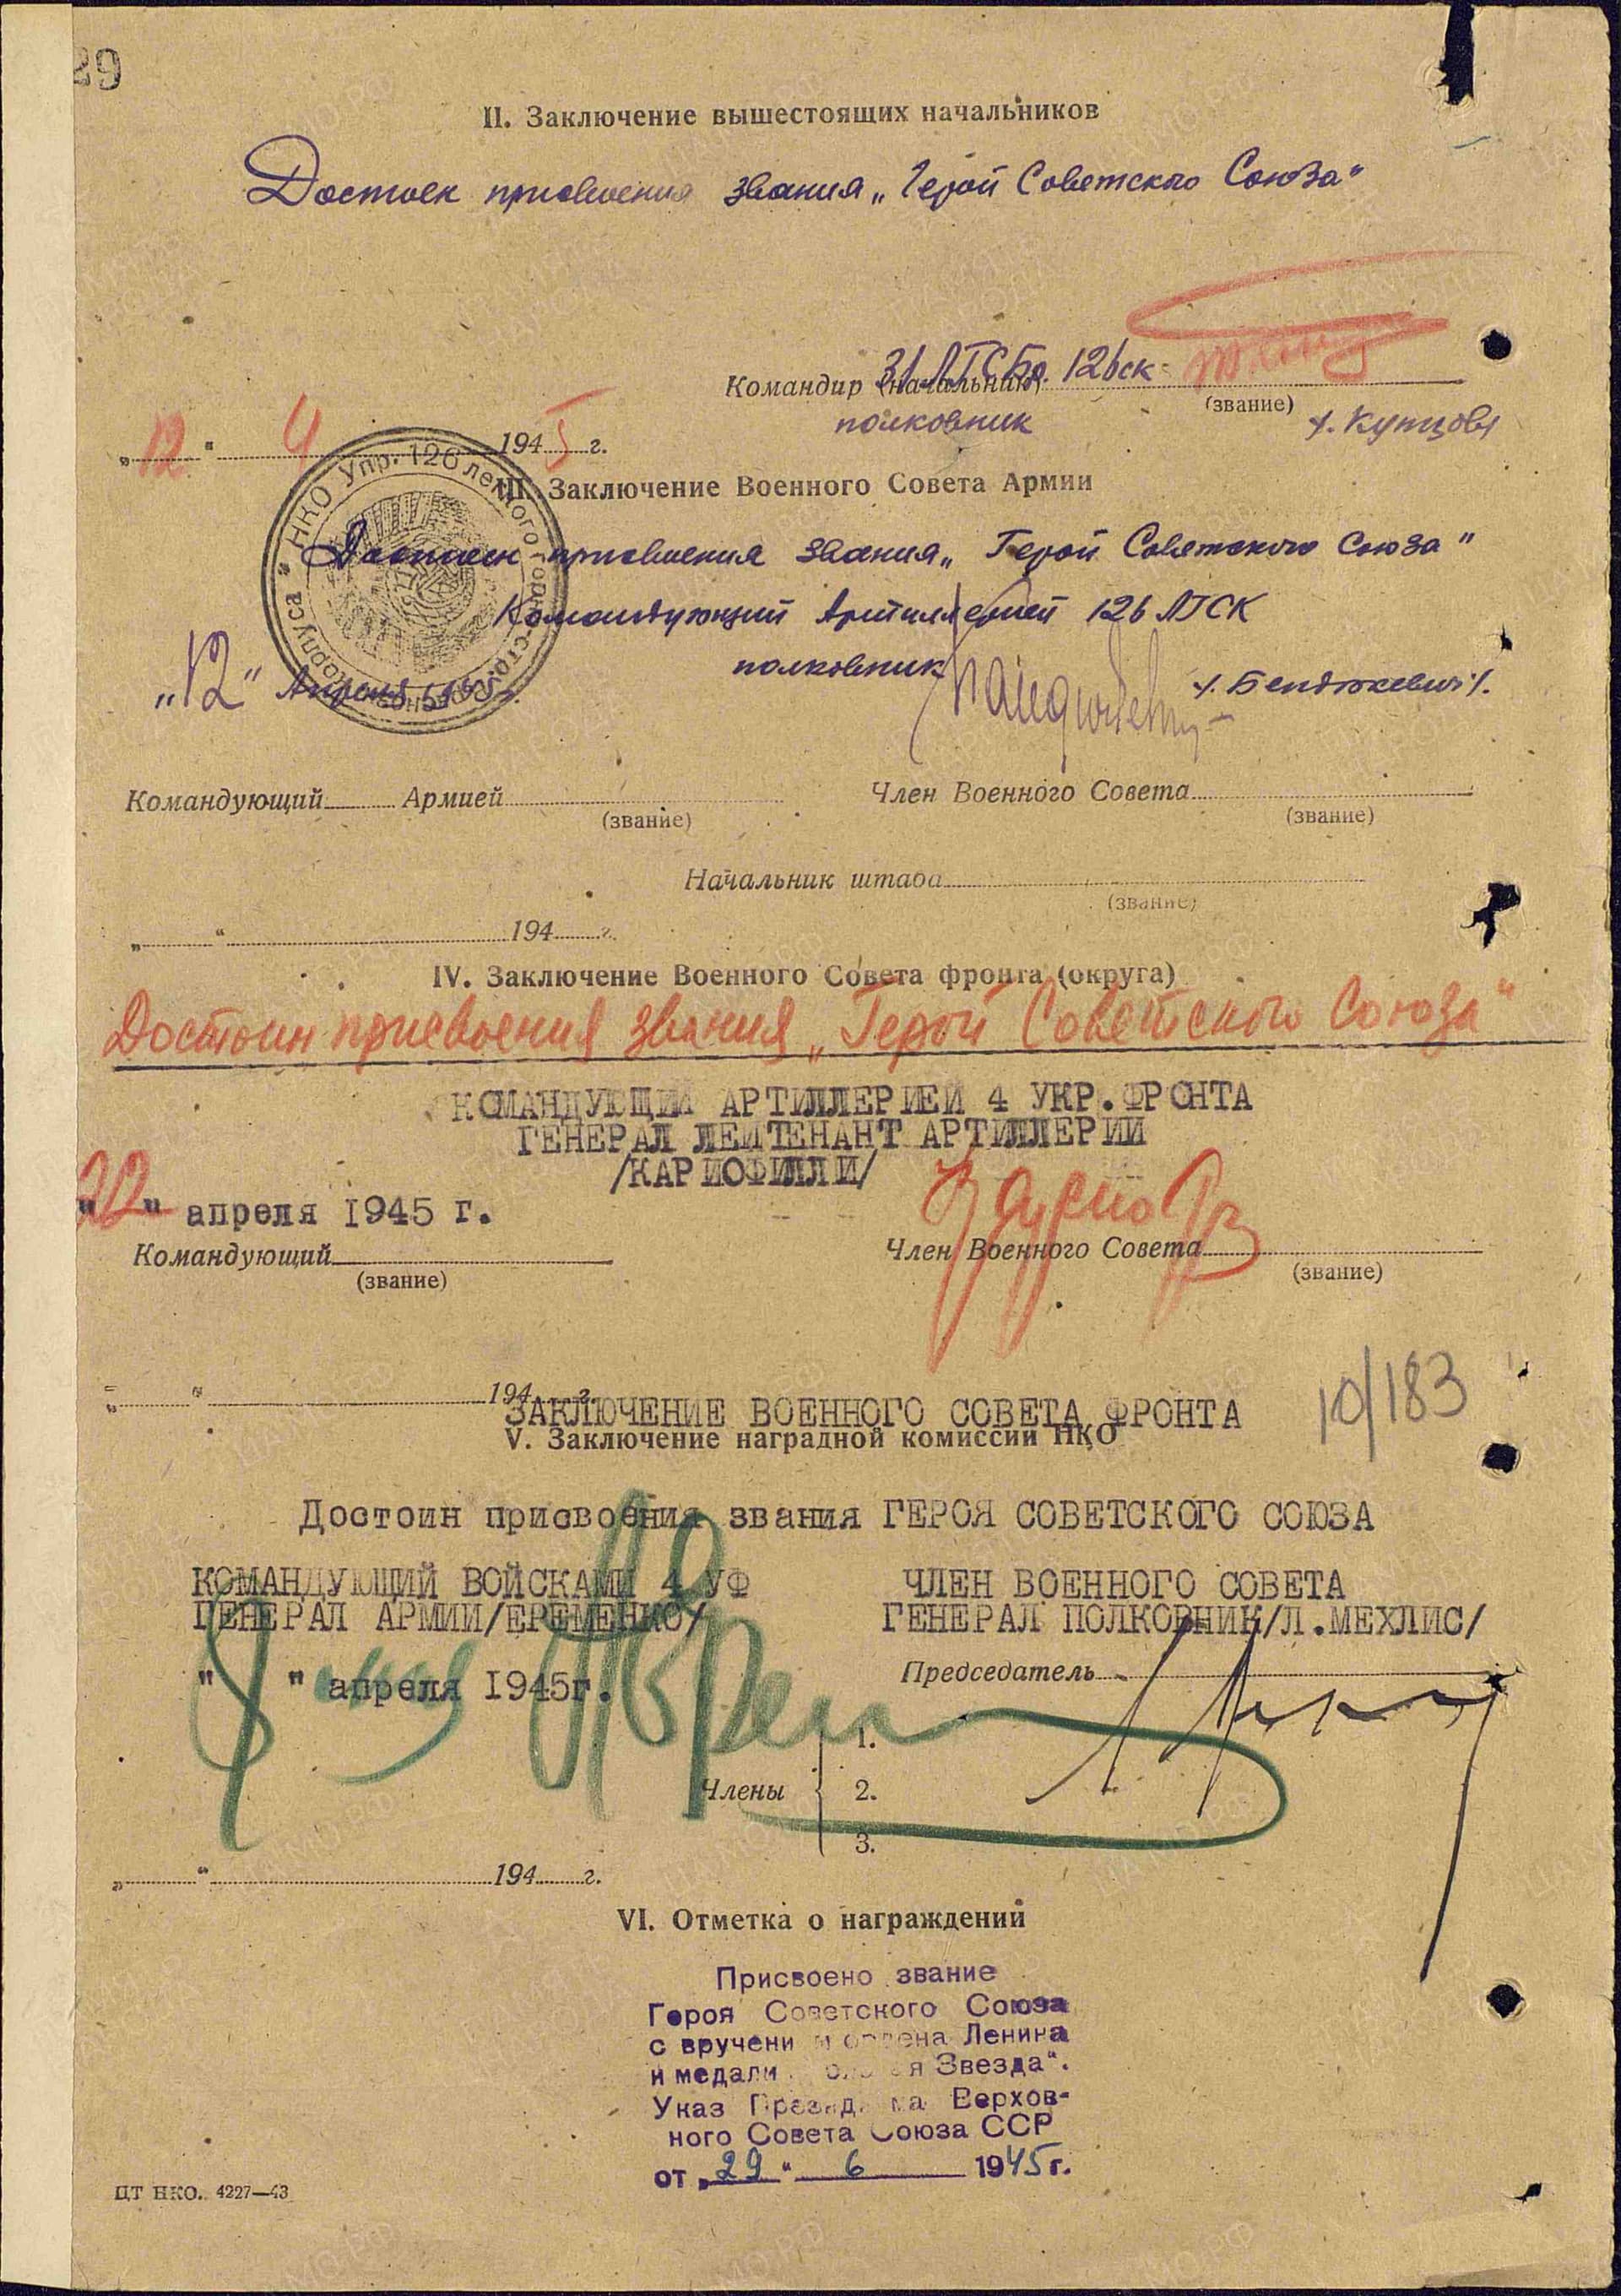 29
II. Заключение вышестоящих начальников
Достоен присвоения звания „Герой Советского Союза“
Командир (начальник) 31 ЛГСБр. 126 ск
(звание)
полковник /. Купцов/
„12“ 4 1945 г.
НКО Упр. 126 легкого горно-стр корпуса
III. Заключение Военного Совета Армии
Достоен присвоения звания „Герой Советского Союза“
Командующий Артиллерией 126 ЛГСК
полковник /. Бендюкевич/.
„12“ Апреля 1945 г.
Командующий Армией
(звание)
Член Военного Совета
(звание)
Начальник штаба
(звание)
„ “ 194 г.
IV. Заключение Военного Совета фронта (округа)
Достоин присвоения звания „Герой Советского Союза“
КОМАНДУЮЩИЙ АРТИЛЛЕРИЕЙ 4 УКР.ФРОНТА
ГЕНЕРАЛ ЛЕЙТЕНАНТ АРТИЛЛЕРИИ
/КАРИОФИЛЛИ/
"22" апреля 1945 г.
Командующий
(звание)
Член Военного Совета
(звание)
„ “ 194 г.
10/183
ЗАКЛЮЧЕНИЕ ВОЕННОГО СОВЕТА ФРОНТА
V. Заключение наградной комиссии НКО
Достоин присвоения звания ГЕРОЯ СОВЕТСКОГО СОЮЗА
КОМАНДУЮЩИЙ ВОЙСКАМИ 4 УФ
ГЕНЕРАЛ АРМИИ/ЕРЕМЕНКО/
ЧЛЕН ВОЕННОГО СОВЕТА
ГЕНЕРАЛ ПОЛКОВНИК/Л.МЕХЛИС/
" " апреля 1945г.
Председатель
Члены
1.
2.
3.
„ “ 194 г.
VI. Отметка о награждении
Присвоено звание
Героя Советского Союза
с вручени м ордена Ленина
и медали Звезда“.
Указ Верхов-
ного Совета Союза ССР
от „29“ 6 1945 г.
ЦТ НКО. 4227—43